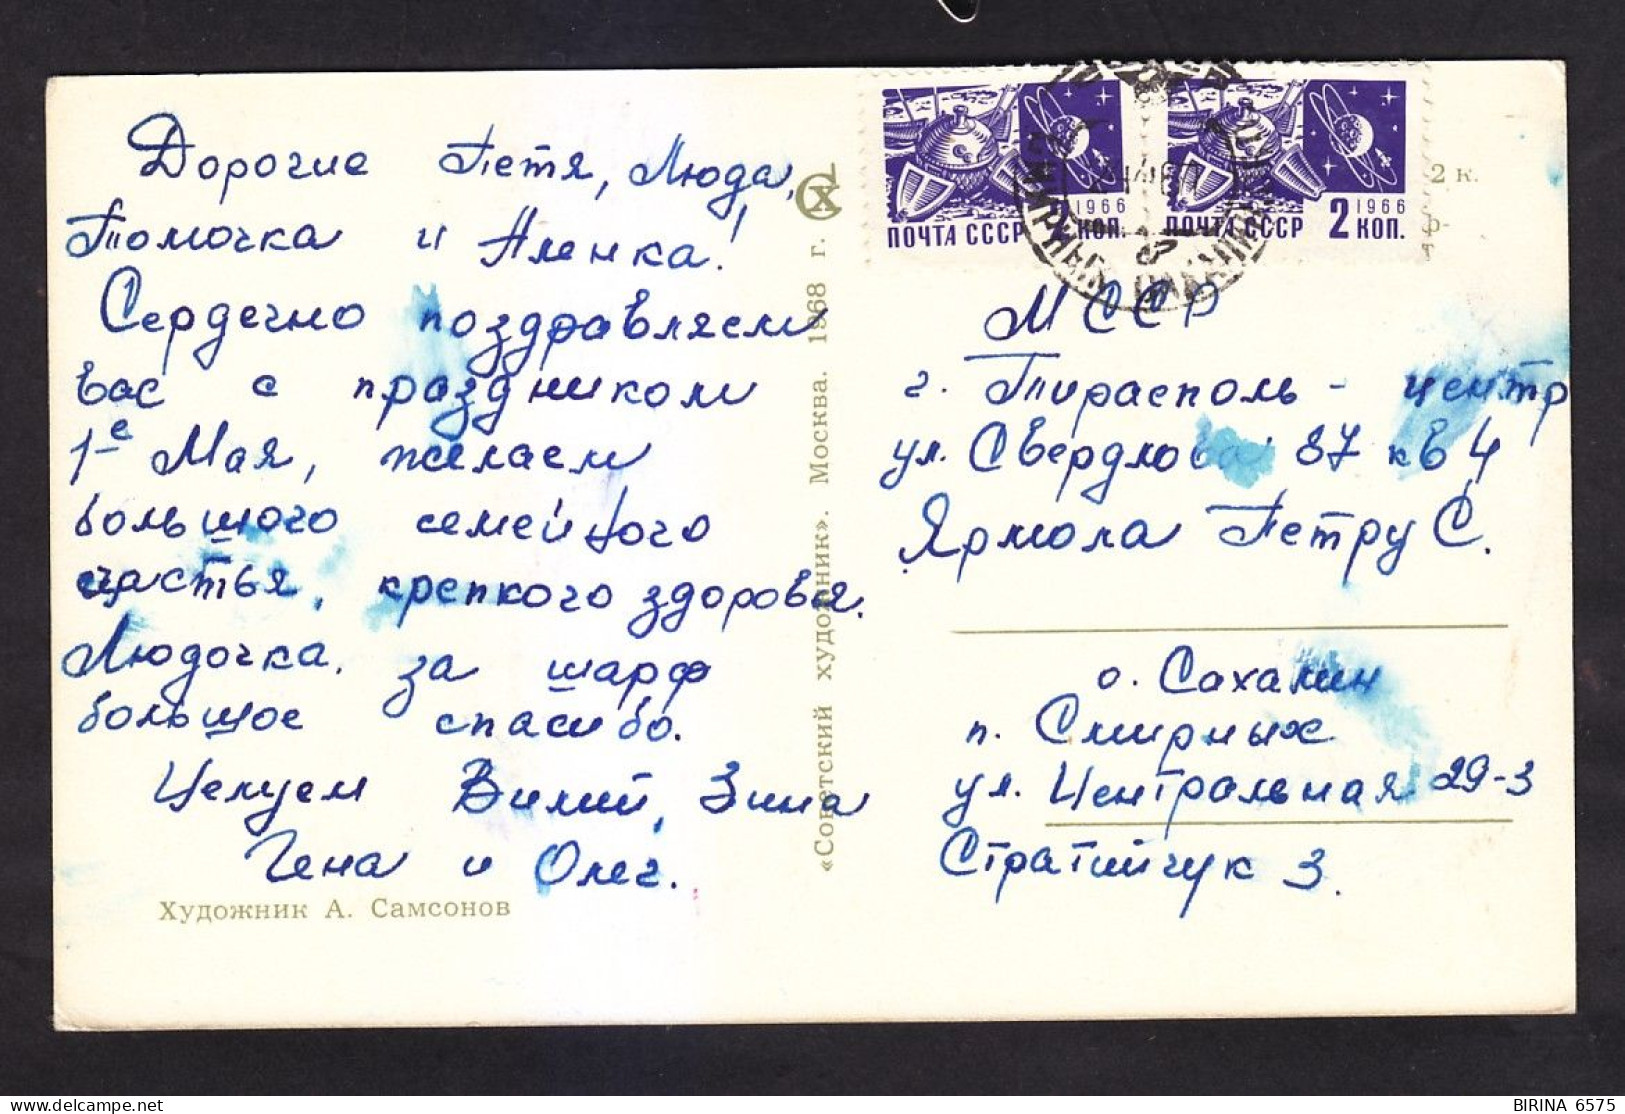 Дорогие Петя, Люда,
Томочка и Аленка!
Сердечно поздравляем
вас с праздником
1-е Мая, желаем
большого семейного
счастья, крепкого здоровья.
Людочка, за шарф
большое спасибо.
Целуем Вилий, Зина
Гена и Олег.
Художник А. Самсонов
«Советский художник». Москва. 1968 г.
СХ
1966
ПОЧТА СССР 2 КОП.
1966
ПОЧТА СССР 2 КОП.
2 к.
ф-
т
МССР
г. Тирасполь - центр
ул. Свердлова 87 кв 4
Ярмола Петру С.
о. Сахалин
п. Смирных
ул. Центральная 29-3
Стратийчук З.
BIRINA 6575